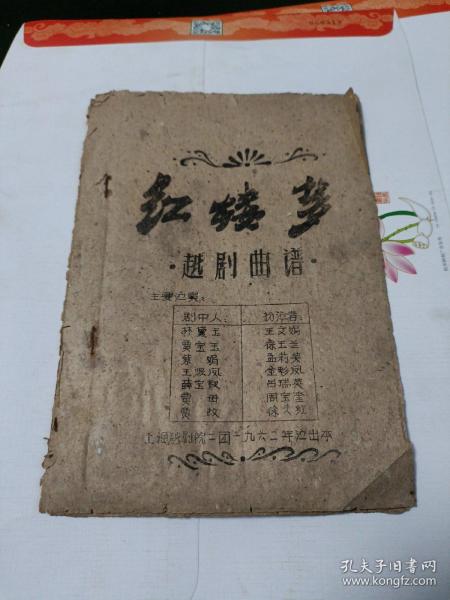 红楼梦
·越剧曲谱·
主要演员:
剧中人: 扮演者:
林黛玉 王文娟
贾宝玉 徐玉兰
紫娟 孟莉英
王熙凤 金彩凤
薛宝钗 吕瑞英
贾母 周宝奎
贾政 徐天红
上海越剧院二团一九六二年演出本
孔夫子旧书网
www.kongfz.com